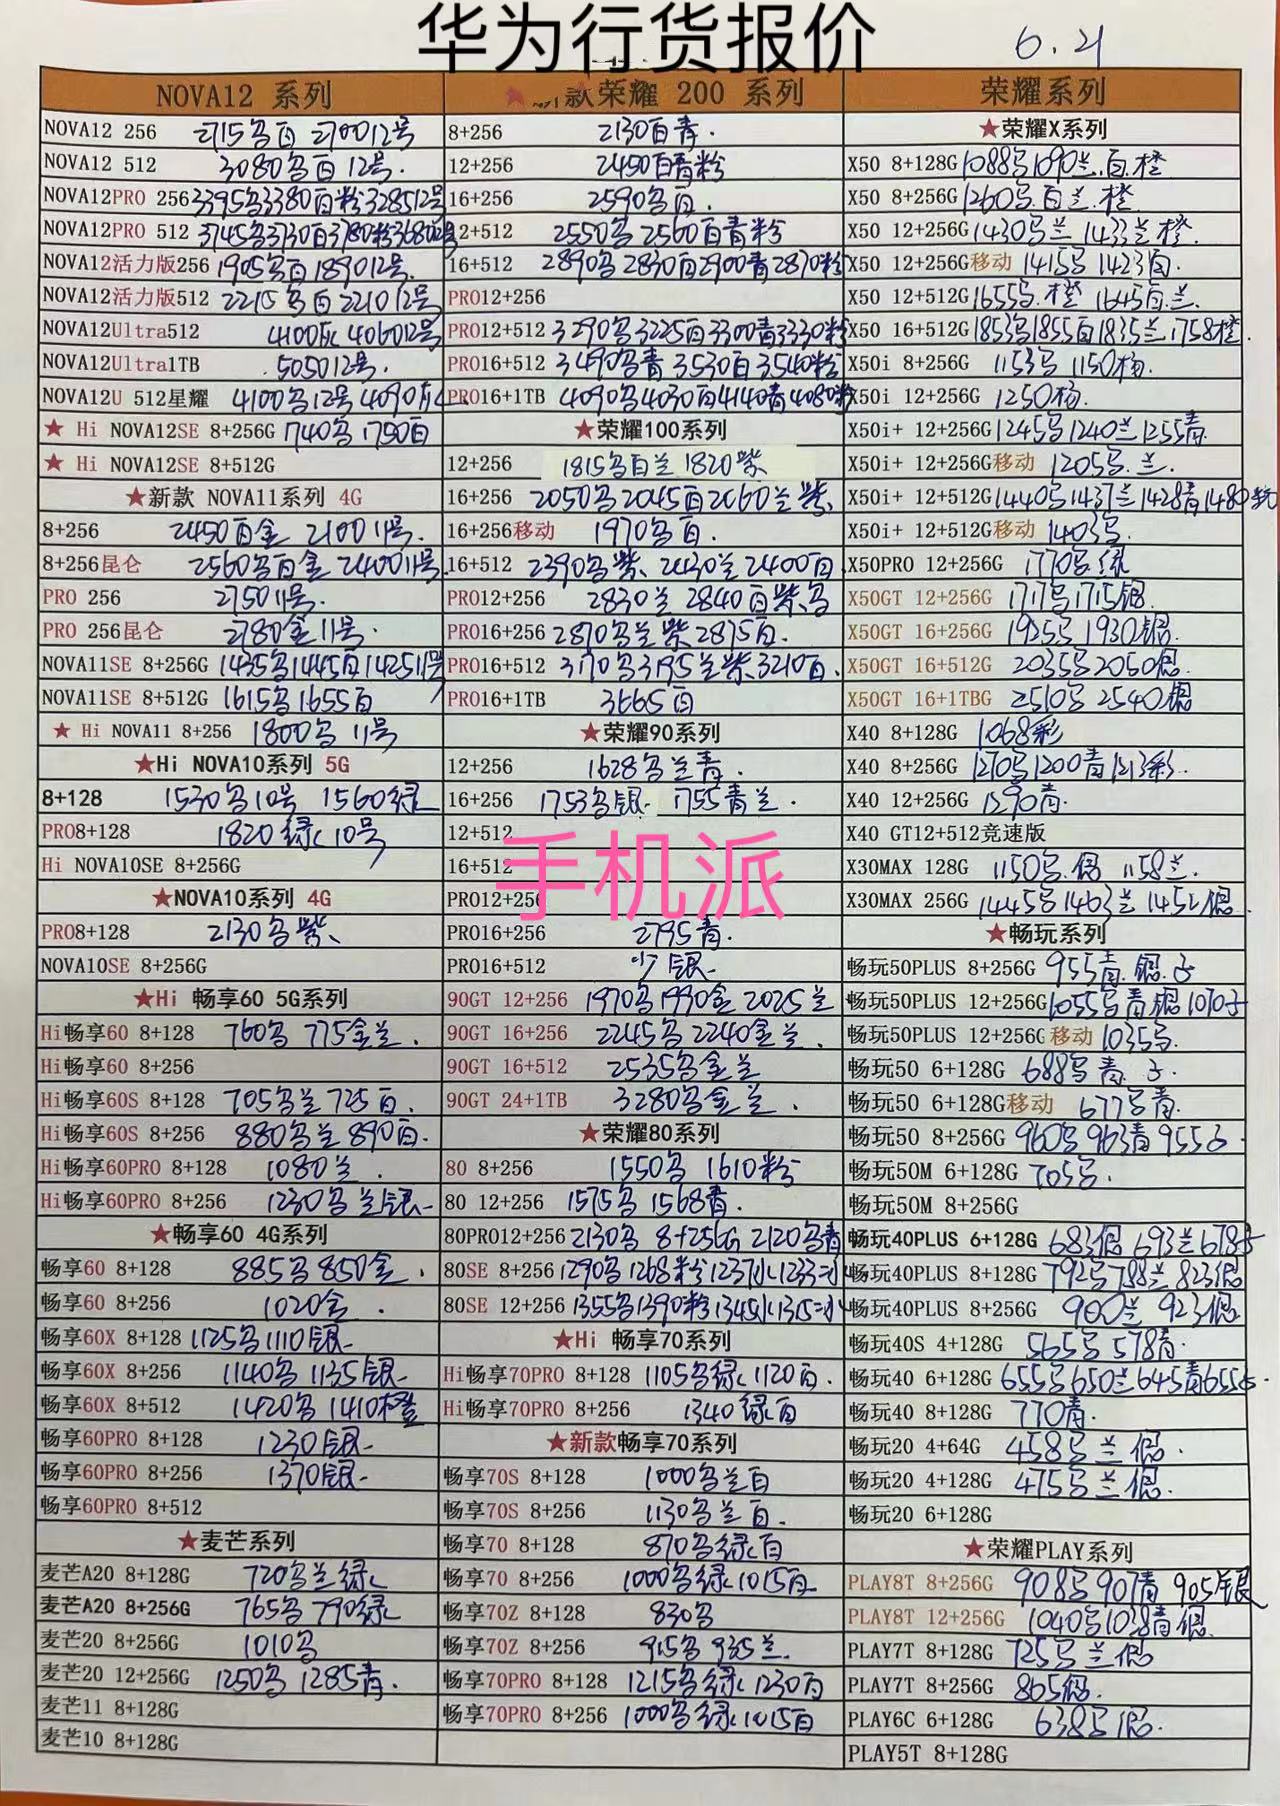 华为行货报价
6.21
NOVA12 系列
NOVA12 256 2715乌白 270012号
NOVA12 512 3080乌白 12号.
NOVA12PRO 256 3395乌3380白粉328512号
NOVA12PRO 512 3745乌3730白3780粉
NOVA12活力版256 1905乌白189012号.
NOVA12活力版512 2215乌白221012号
NOVA12Ultra512 406012号
NOVA12Ultra1TB 505012号.
NOVA12U 512星耀 4100乌12号4090
★ Hi NOVA12SE 8+256G 1740乌1750白
★ Hi NOVA12SE 8+512G
★新款 NOVA11系列 4G
8+256 2450白金 210011号.
8+256昆仑 2560乌白金 240011号
PRO 256 275011号.
PRO 256昆仑 2780金11号.
NOVA11SE 8+256G 1435乌1445白142511号
NOVA11SE 8+512G 1615乌1655白
★ Hi NOVA11 8+256 1800乌11号
★Hi NOVA10系列 5G
8+128 1530乌10号 1560绿
PRO8+128 1820绿10号
Hi NOVA10SE 8+256G
★NOVA10系列 4G
PRO8+128 2130乌紫
NOVA10SE 8+256G
★Hi 畅享60 5G系列
Hi畅享60 8+128 760乌 775金兰.
Hi畅享60 8+256
Hi畅享60S 8+128 705乌兰725白.
Hi畅享60S 8+256 880乌兰890白.
Hi畅享60PRO 8+128 1080兰.
Hi畅享60PRO 8+256 1230乌兰银
★畅享60 4G系列
畅享60 8+128 885乌850金.
畅享60 8+256 1020金.
畅享60X 8+128 1125乌1110银
畅享60X 8+256 1140乌1135银
畅享60X 8+512 1420乌1410橙
畅享60PRO 8+128 1230银
畅享60PRO 8+256 1370银
畅享60PRO 8+512
★麦芒系列
麦芒A20 8+128G 720乌兰绿
麦芒A20 8+256G 765乌790绿
麦芒20 8+256G 1010乌
麦芒20 12+256G 1250乌1285青.
麦芒11 8+128G
麦芒10 8+128G
款荣耀 200 系列
8+256 2130白青.
12+256 2450白青粉
16+256 2590乌白.
12+512 2550乌2560白青粉
16+512 2890乌2830白2900青2870粉
PRO12+256
PRO12+512 3290乌3225白3300青3330粉
PRO16+512 3490乌青3530白3540粉
PRO16+1TB 4090乌4030白4140青4080粉
★荣耀100系列
12+256 1815乌白兰1820紫
16+256 2050乌2045白2060兰紫
16+256移动 1970乌白.
16+512 2390乌紫2430兰2400白
PRO12+256 2830兰2840白紫乌
PRO16+256 2870乌兰紫2875白.
PRO16+512 3170乌3195兰紫3210白.
PRO16+1TB 3665白
★荣耀90系列
12+256 1628乌兰青.
16+256 1753乌银 1755青兰.
12+512
16+512
PRO12+256
PRO16+256 2795青.
PRO16+512 少银
90GT 12+256 1970乌1990金2025兰
90GT 16+256 2245乌2240金兰.
90GT 16+512 2535乌金兰
90GT 24+1TB 3280乌金兰.
★荣耀80系列
80 8+256 1550乌1610粉
80 12+256 1575乌1568青.
80PRO12+256 2130乌 8+256G 2120乌青
80SE 8+256 1290乌1268粉
80SE 12+256 1355乌1390粉
★Hi 畅享70系列
Hi畅享70PRO 8+128 1105乌绿1120白.
Hi畅享70PRO 8+256 1340绿白
★新款畅享70系列
畅享70S 8+128 1000乌兰白
畅享70S 8+256 1130乌兰白.
畅享70 8+128 870乌绿白
畅享70 8+256 1000乌绿1015白
畅享70Z 8+128 830乌
畅享70Z 8+256 915乌935兰.
畅享70PRO 8+128 1215乌绿1230白
畅享70PRO 8+256 1000乌绿1015白
荣耀系列
★荣耀X系列
X50 8+128G 1088乌1090兰.白.橙
X50 8+256G 1260乌.白兰.橙
X50 12+256G 1430乌兰1433兰橙.
X50 12+256G移动 1415乌1423白.
X50 12+512G 1655乌.橙1645白.兰
X50 16+512G 1853乌1855白1835兰1758橙.
X50i 8+256G 1153乌1150杨.
X50i 12+256G 1250杨.
X50i+ 12+256G 1245乌1240兰1255青
X50i+ 12+256G移动 1205乌.兰.
X50i+ 12+512G 1440乌1437兰1428青1480
X50i+ 12+512G移动 1403乌.
X50PRO 12+256G 1770乌绿
X50GT 12+256G 1717乌1715银.
X50GT 16+256G 1925乌1930银.
X50GT 16+512G 2035乌2050银.
X50GT 16+1TBG 2510乌2540银
X40 8+128G 1068彩
X40 8+256G 1270乌1200青1213彩.
X40 12+256G 1290青.
X40 GT12+512竞速版
X30MAX 128G 1150乌.银1158兰.
X30MAX 256G 1445乌1463兰1452银.
★畅玩系列
畅玩50PLUS 8+256G 955青.银.子
畅玩50PLUS 12+256G 1055乌青银1070子
畅玩50PLUS 12+256G移动 1035乌.
畅玩50 6+128G 688乌青.子.
畅玩50 6+128G移动 677乌青.
畅玩50 8+256G 960乌963青955子.
畅玩50M 6+128G 705乌.
畅玩50M 8+256G
畅玩40PLUS 6+128G 683银693兰678子
畅玩40PLUS 8+128G 792乌788兰823银
畅玩40PLUS 8+256G 900兰923银
畅玩40S 4+128G 565乌578青.
畅玩40 6+128G 655乌650兰645青655
畅玩40 8+128G 770青.
畅玩20 4+64G 458乌兰银.
畅玩20 4+128G 475乌兰银.
畅玩20 6+128G
★荣耀PLAY系列
PLAY8T 8+256G 908乌907青905银
PLAY8T 12+256G 1040乌1038青银.
PLAY7T 8+128G 725乌兰银
PLAY7T 8+256G 865银.
PLAY6C 6+128G 638乌银.
PLAY5T 8+128G
手机派